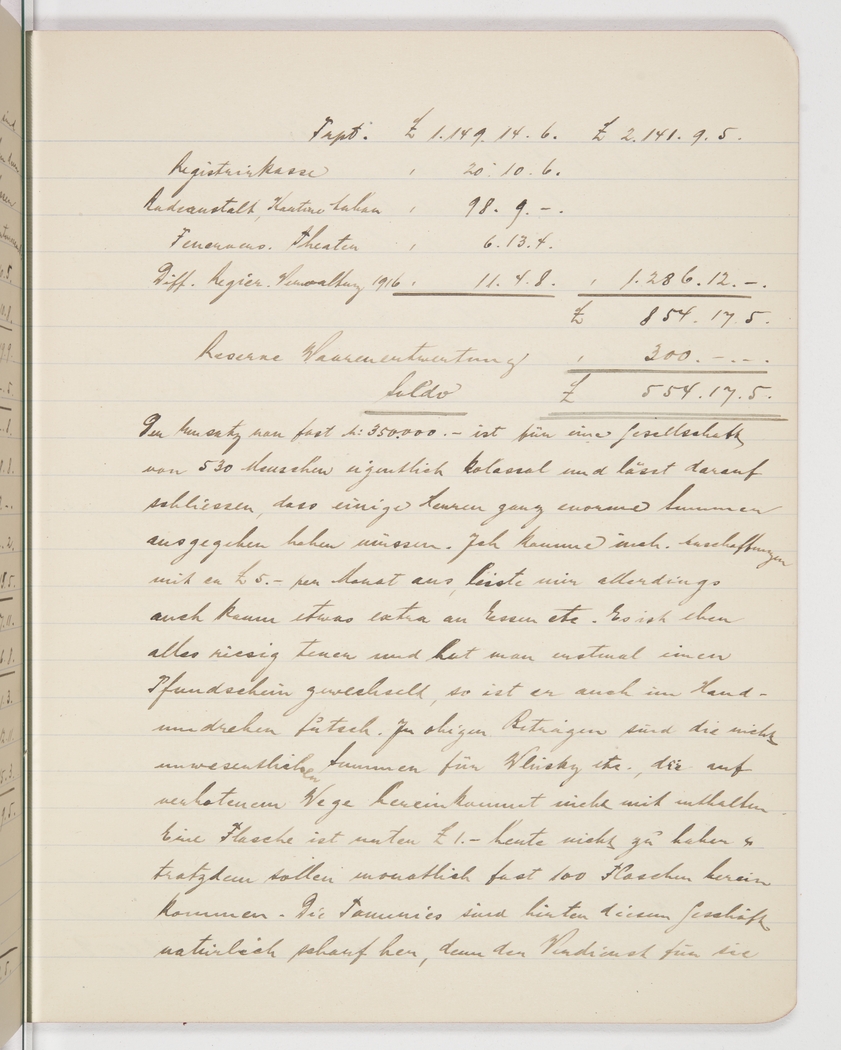 Trspt. £ 1.149.14.6. £ 2.141.9.5.
Registrirkasse " 20.10.6.
Badeanstalt, Kantine Luban " 98.9.-.
Feuerwers. Theater " 6.13.4.
Diff. Regier. Verwaltung 1916 " 11.4.8. " 1.286.12.-.
£ 854.17.5.
Reserve Waarenentwertung " 300.-.-.
Saldo £ 554.17.5.
Der Umsatz von fast M: 350.000.- ist für eine Gesellschaft
von 530 Menschen eigentlich kolossal und lässt darauf
schliessen, dass einige Herren ganz enorme Summen
ausgegeben haben müssen. Ich komme incl. Anschaffungen
mit ca £ 5.- per Monat aus, leiste mir allerdings
auch kaum etwas extra an Essen etc. Es ist eben
alles riesig teuer und hat man erstmal einen
Pfundschein gewechselt, so ist er auch im Hand-
umdrehen futsch. In obigen Beträgen sind die nicht
unwesentlichen Summen für Whisky etc., die auf
verbotenem Wege hereinkommt nicht mit enthalten.
Eine Flasche ist unter £ 1.- heute nicht zu haben &
trotzdem sollen monatlich fast 100 Flaschen herein
kommen. Die Tommies sind hinter diesem Geschäft
natürlich scharf her, denn der Verdienst für sie